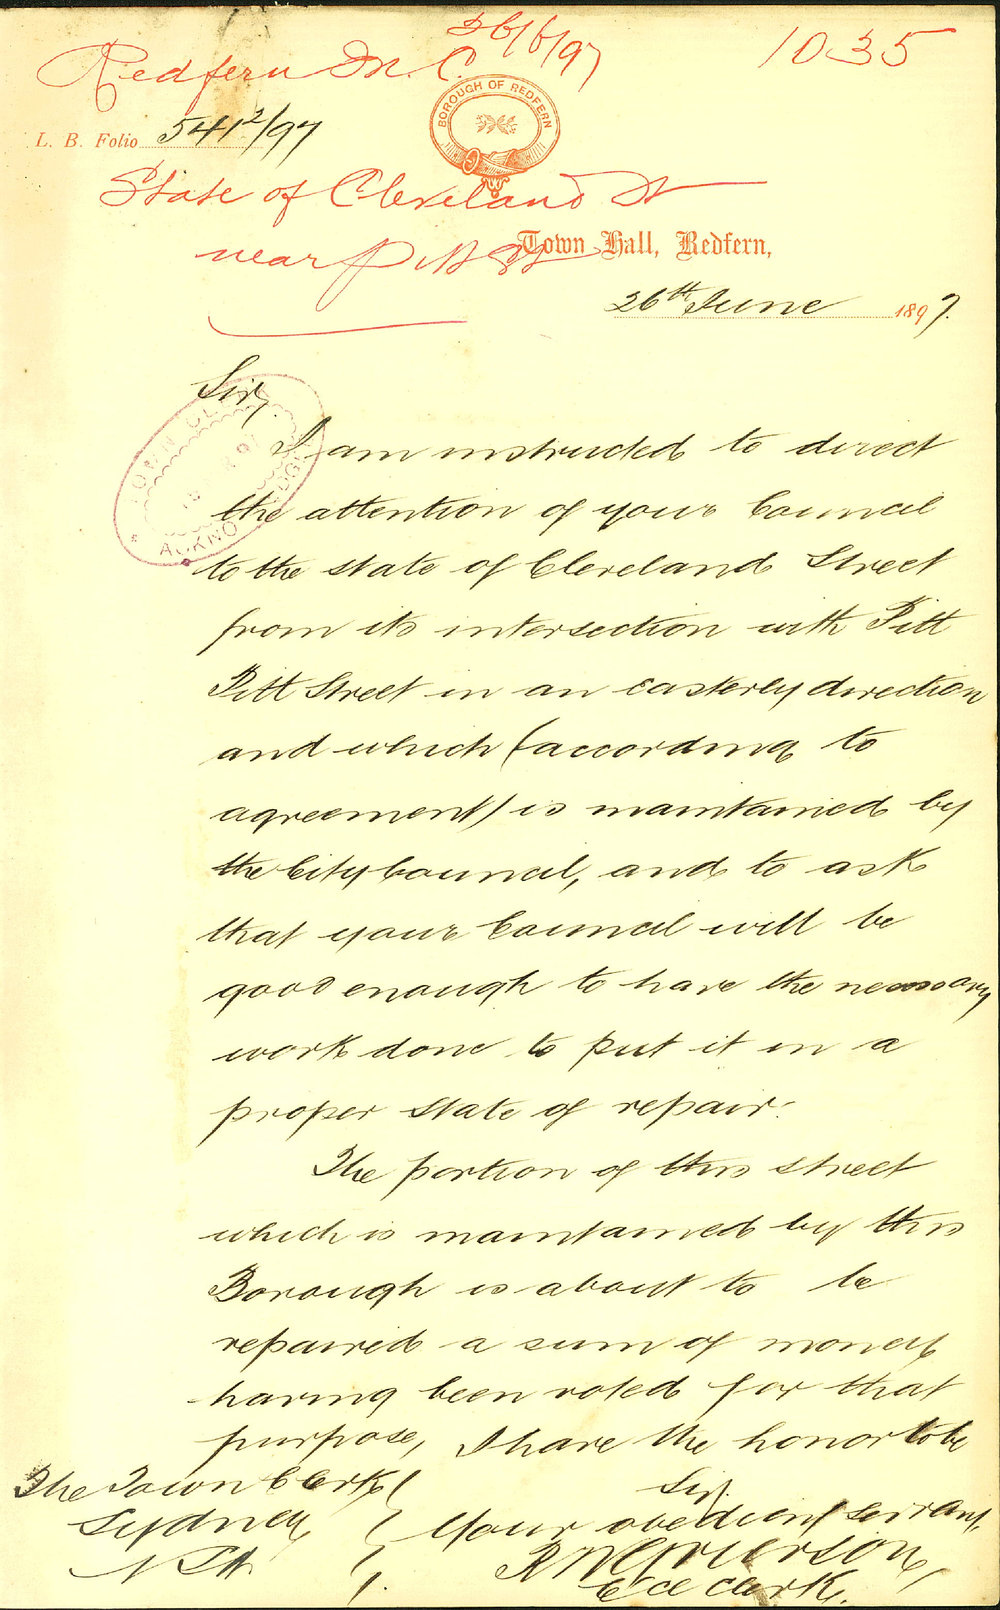 Redfern M. C. 26/6/97
1035
BOROUGH OF REDFERN
L. B. Folio 541²/97
State of Cleveland St
near Pitt St
Town Hall, Redfern,
26th June 1897.
Sir,
I am instructed to direct
the attention of your Council
to the state of Cleveland Street
from its intersection with Pitt
Pitt Street in an easterly direction
and which (according to
agreement) is maintained by
the City Council, and to ask
that your Council will be
good enough to have the necessary
work done to put it in a
proper state of repair.
The portion of this street
which is maintained by this
Borough is about to be
repaired a sum of money
having been voted for that
purpose, I have the honor to be
Sir,
The Town Clerk
Sydney
NSW
Your obedient servant,
Clerk.
TOWN CLERK
ACKNOWLEDGED